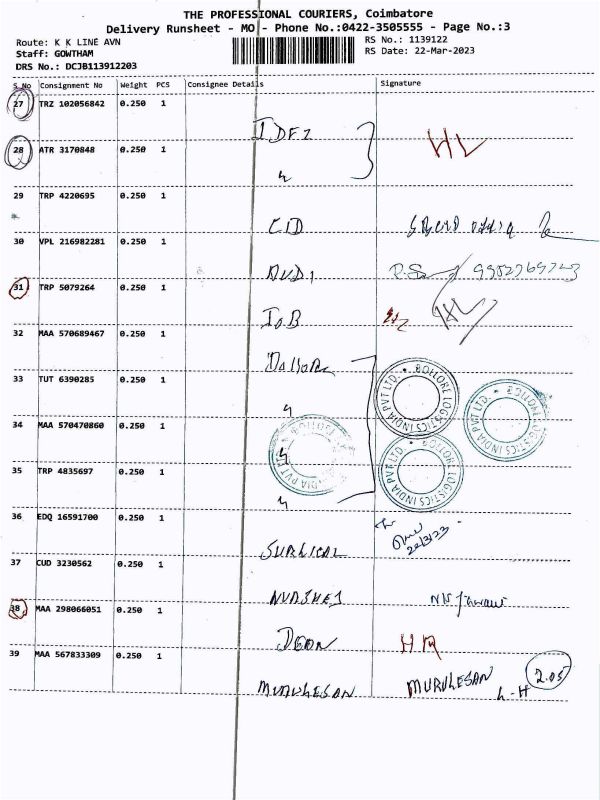 THE PROFESSIONAL COURIERS, Coimbatore
Delivery Runsheet - MO - Phone No.:0422-3505555 - Page No.:3
Route: K K LINE AVN
RS No.: 1139122
Staff: GOWTHAM
RS Date: 22-Mar-2023
DRS No.: DCJB113912203
S No Consignment No Weight PCS Consignee Details Signature
27 TRZ 102056842 0.250 1
28 ATR 3170848 0.250 1
29 TRP 4220695 0.250 1
CID
30 VPL 216982281 0.250 1
31 TRP 5079264 0.250 1
IOB
32 MAA 570689467 0.250 1
33 TUT 6390285 0.250 1
BOLLORE LOGISTICS INDIA PVT LTD.
BOLLORE LOGISTICS INDIA PVT LTD.
34 MAA 570470860 0.250 1
BOLLORE LOGISTICS INDIA PVT LTD.
35 TRP 4835697 0.250 1
36 EDQ 16591700 0.250 1
22/3/23
SURGICAL
37 CUD 3230562 0.250 1
38 MAA 298066051 0.250 1
39 MAA 567833309 0.250 1
2.05
MURUGESAN MURUGESAN